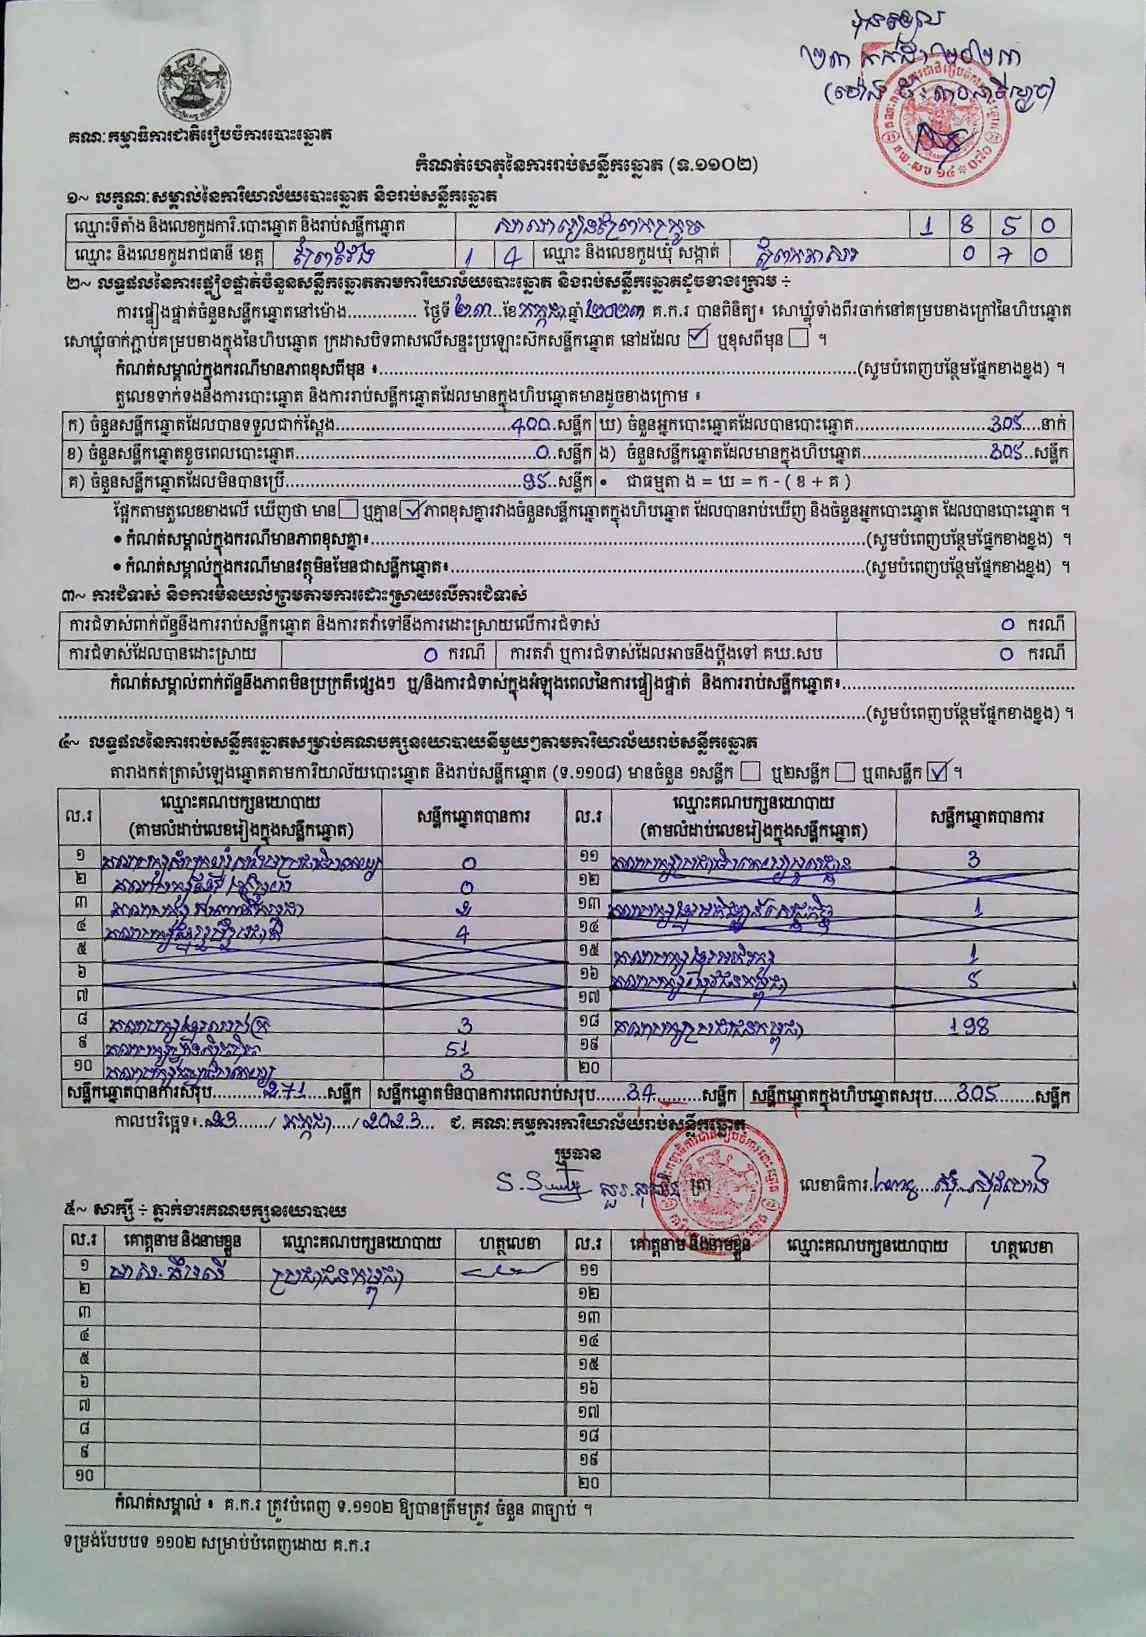 ២៣ កក្កដា ២០២៣
គណៈកម្មាធិការជាតិរៀបចំការបោះឆ្នោត
កំណត់ហេតុនៃការរាប់សន្លឹកឆ្នោត (ទ.១១០២)
១~ លក្ខណៈសម្គាល់នៃការិយាល័យបោះឆ្នោត និងរាប់សន្លឹកឆ្នោត
ឈ្មោះទីតាំង និងលេខកូដការិ.បោះឆ្នោត និងរាប់សន្លឹកឆ្នោត 1 8 5 0
ឈ្មោះ និងលេខកូដរាជធានី ខេត្ត ព្រៃវែង 1 4 ឈ្មោះ និងលេខកូដឃុំ សង្កាត់ 0 7 0
២~ លទ្ធផលនៃការផ្ទៀងផ្ទាត់ចំនួនសន្លឹកឆ្នោតតាមការិយាល័យបោះឆ្នោត និងរាប់សន្លឹកឆ្នោតដូចខាងក្រោម ÷
ការផ្ទៀងផ្ទាត់ចំនួនសន្លឹកឆ្នោតនៅម៉ោង.............. ថ្ងៃទី ២៣...ខែ កក្កដា ឆ្នាំ ២០២៣ គ.ក.រ បានពិនិត្យ៖ សោឃ្លុំទាំងពីរចាក់នៅគម្របខាងក្រៅនៃហិបឆ្នោត
សោឃ្លុំចាក់ភ្ជាប់គម្របខាងក្នុងនៃហិបឆ្នោត ក្រដាសបិទពាសលើសន្ទះប្រឡោះស៊កសន្លឹកឆ្នោត នៅដដែល ☑ ឬខុសពីមុន ☐ ។
កំណត់សម្គាល់ក្នុងករណីមានភាពខុសពីមុន ៖..........(សូមបំពេញបន្ថែមផ្នែកខាងខ្នង) ។
តួលេខទាក់ទងនឹងការបោះឆ្នោត និងការរាប់សន្លឹកឆ្នោតដែលមានក្នុងហិបឆ្នោតមានដូចខាងក្រោម ៖
ក) ចំនួនសន្លឹកឆ្នោតដែលបានទទួលជាក់ស្តែង..........400.សន្លឹក ឃ) ចំនួនអ្នកបោះឆ្នោតដែលបានបោះឆ្នោត..........305....នាក់
ខ) ចំនួនសន្លឹកឆ្នោតខូចពេលបោះឆ្នោត..........0.សន្លឹក ង) ចំនួនសន្លឹកឆ្នោតដែលមានក្នុងហិបឆ្នោត..........305..សន្លឹក
គ) ចំនួនសន្លឹកឆ្នោតដែលមិនបានប្រើ..........95..សន្លឹក • ជាធម្មតា ង = ឃ = ក - ( ខ + គ )
ផ្អែកតាមតួលេខខាងលើ ឃើញថា មាន ☐ ឬគ្មាន ☑ ភាពខុសគ្នារវាងចំនួនសន្លឹកឆ្នោតក្នុងហិបឆ្នោត ដែលបានរាប់ឃើញ និងចំនួនអ្នកបោះឆ្នោត ដែលបានបោះឆ្នោត ។
• កំណត់សម្គាល់ក្នុងករណីមានភាពខុសគ្នា៖..........(សូមបំពេញបន្ថែមផ្នែកខាងខ្នង) ។
• កំណត់សម្គាល់ក្នុងករណីមានវត្ថុមិនមែនជាសន្លឹកឆ្នោត៖..........(សូមបំពេញបន្ថែមផ្នែកខាងខ្នង) ។
៣~ ការជំទាស់ និងការមិនយល់ព្រមតាមការដោះស្រាយលើការជំទាស់
ការជំទាស់ពាក់ព័ន្ធនឹងការរាប់សន្លឹកឆ្នោត និងការតវ៉ាទៅនឹងការដោះស្រាយលើការជំទាស់ 0 ករណី
ការជំទាស់ដែលបានដោះស្រាយ 0 ករណី ការតវ៉ា ឬការជំទាស់ដែលអាចនឹងប្តឹងទៅ គឃ.សប 0 ករណី
កំណត់សម្គាល់ពាក់ព័ន្ធនឹងភាពមិនប្រក្រតីផ្សេងៗ ឬ/និងការជំទាស់ក្នុងអំឡុងពេលនៃការផ្ទៀងផ្ទាត់ និងការរាប់សន្លឹកឆ្នោត៖..........
..........(សូមបំពេញបន្ថែមផ្នែកខាងខ្នង) ។
៤~ លទ្ធផលនៃការរាប់សន្លឹកឆ្នោតសម្រាប់គណបក្សនយោបាយនីមួយៗតាមការិយាល័យរាប់សន្លឹកឆ្នោត
តារាងកត់ត្រាសំឡេងឆ្នោតតាមការិយាល័យបោះឆ្នោត និងរាប់សន្លឹកឆ្នោត (ទ.១១០៨) មានចំនួន ១សន្លឹក ☐ ឬ២សន្លឹក ☐ ឬ៣សន្លឹក ☑ ។
ល.រ ឈ្មោះគណបក្សនយោបាយ (តាមលំដាប់លេខរៀងក្នុងសន្លឹកឆ្នោត) សន្លឹកឆ្នោតបានការ ល.រ ឈ្មោះគណបក្សនយោបាយ (តាមលំដាប់លេខរៀងក្នុងសន្លឹកឆ្នោត) សន្លឹកឆ្នោតបានការ
១ 0 ១១ 3
២ 0 ១២
៣ 2 ១៣ 1
៤ 4 ១៤
៥ ១៥ 1
៦ ១៦ 5
៧ ១៧
៨ 3 ១៨ គណបក្សប្រជាជនកម្ពុជា 198
៩ 51 ១៩
១០ 3 ២០
សន្លឹកឆ្នោតបានការសរុប..........271.....សន្លឹក សន្លឹកឆ្នោតមិនបានការពេលរាប់សរុប.....34..........សន្លឹក សន្លឹកឆ្នោតក្នុងហិបឆ្នោតសរុប....305........សន្លឹក
កាលបរិច្ឆេទ៖..23......./ កក្កដា..../.2023... ជ. គណៈកម្មការការិយាល័យរាប់សន្លឹកឆ្នោត
ប្រធាន
ត្រា លេខាធិការ
៥~ សាក្សី ÷ ភ្នាក់ងារគណបក្សនយោបាយ
ល.រ គោត្តនាម និងនាមខ្លួន ឈ្មោះគណបក្សនយោបាយ ហត្ថលេខា ល.រ គោត្តនាម និងនាមខ្លួន ឈ្មោះគណបក្សនយោបាយ ហត្ថលេខា
១ ប្រជាជនកម្ពុជា ១១
២ ១២
៣ ១៣
៤ ១៤
៥ ១៥
៦ ១៦
៧ ១៧
៨ ១៨
៩ ១៩
១០ ២០
កំណត់សម្គាល់ ៖ គ.ក.រ ត្រូវបំពេញ ទ.១១០២ ឱ្យបានត្រឹមត្រូវ ចំនួន ៣ច្បាប់ ។
ទម្រង់បែបបទ ១១០២ សម្រាប់បំពេញដោយ គ.ក.រ